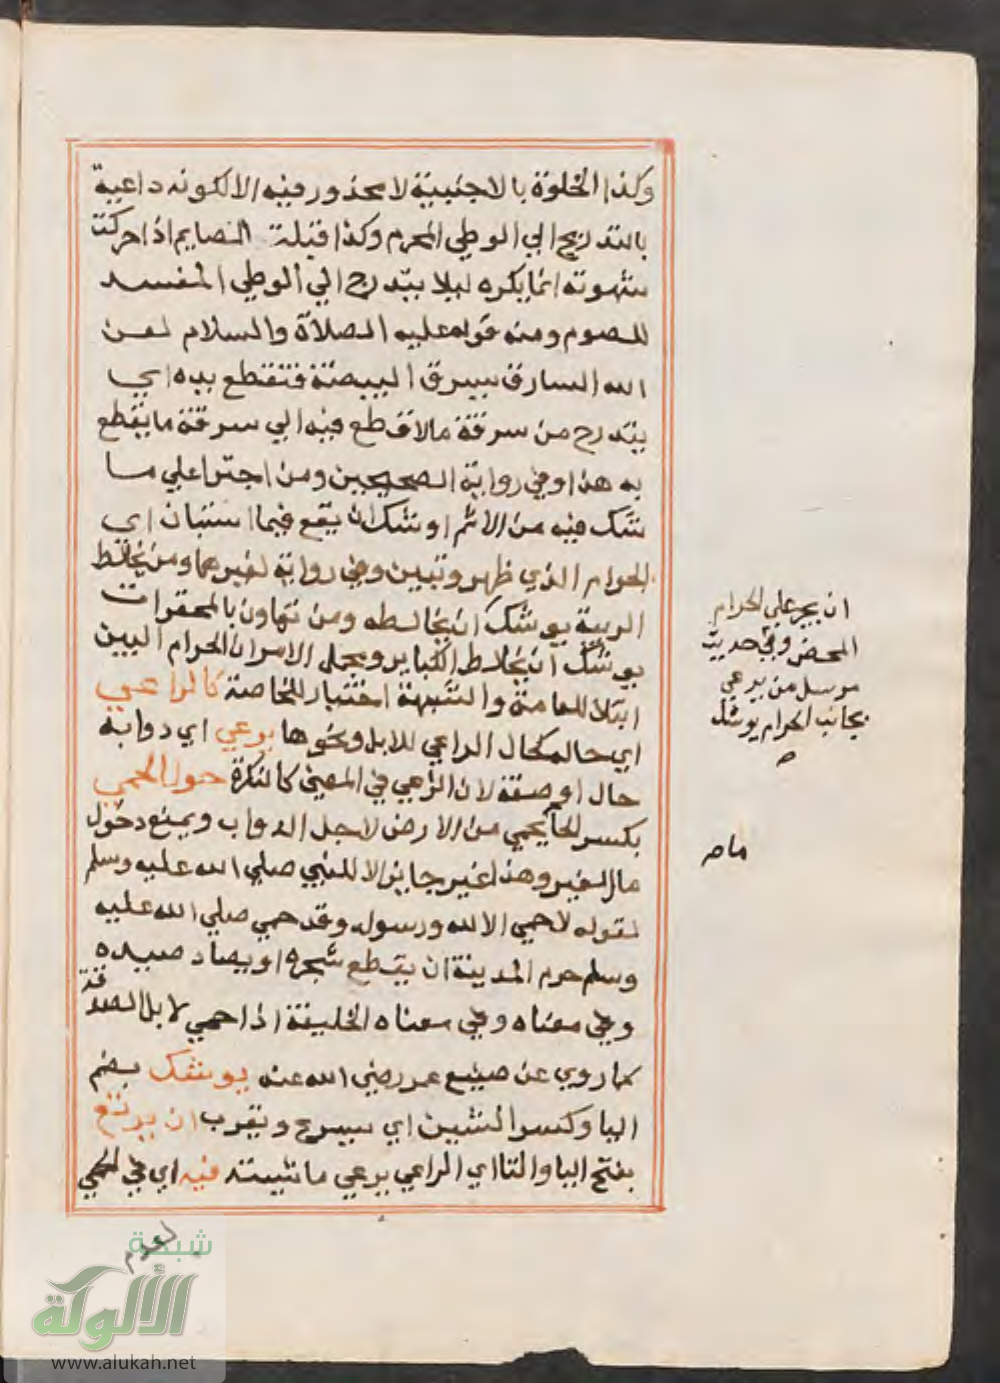 وكذا الخلوة بالاجنبية لا محذور فيه الا لكونه داعية
بالتدريج الي الوطي المحرم وكذا قبلة الصايم اذا حركت
شهوته انما يكره ليلا يتدرج الي الوطي المفسد
للصوم ومنه قوله عليه الصلاة والسلام لعن
الله السارق يسرق البيضة فتقطع يده اي
يتدرج من سرقة مالا قطع فيه الي سرقة ما يقطع
به هذا وفي رواية الصحيحين ومن اجترا علي ما
شك فيه من الاثم اوشك ان يقع فيما استبان اي
الحرام الذي ظهر وتبين وفي رواية لغيرهما ومن يخالط
الريبة يوشك ان يخالطه ومن تهاون بالمحقرات
يوشك ان يخالط الكباير ويحمل الامر ان الحرام البين
ابتلا للعامة والشبهة اختبار للخاصة كالراعي
اي حاله كحال الراعي للابل ونحوها يرعي اي دوابه
حال او صفة لان الراعي في المعني كالنكرة حول الحمي
بكسر الحا يحمي من الارض لاجل الدواب ويمنع دخول
مال الغير وهذا غير جايز الا للنبي صلي الله عليه وسلم
لقوله لا حمي الا لله ورسوله وقد حمي صلي الله عليه
وسلم حرم المدينة ان يقطع شجره او يصاد صيده
وفي معناه وفي معناه الخليفة اذا حمي لابل الصدقة
كما روي عن صنيع عمر رضي الله عنه يوشك بضم
اليا وكسر الشين اي يسرع ويقرب ان يرتع
بفتح اليا والتا اي الراعي يرعي ماشيته فيه اي في الحمي
ان يجر علي الحرام
المحض وفي حديث
مرسل من يرعي
بجانب الحرام يوشك
ص
ما ص
شبكة
الألوكة
www.alukah.net